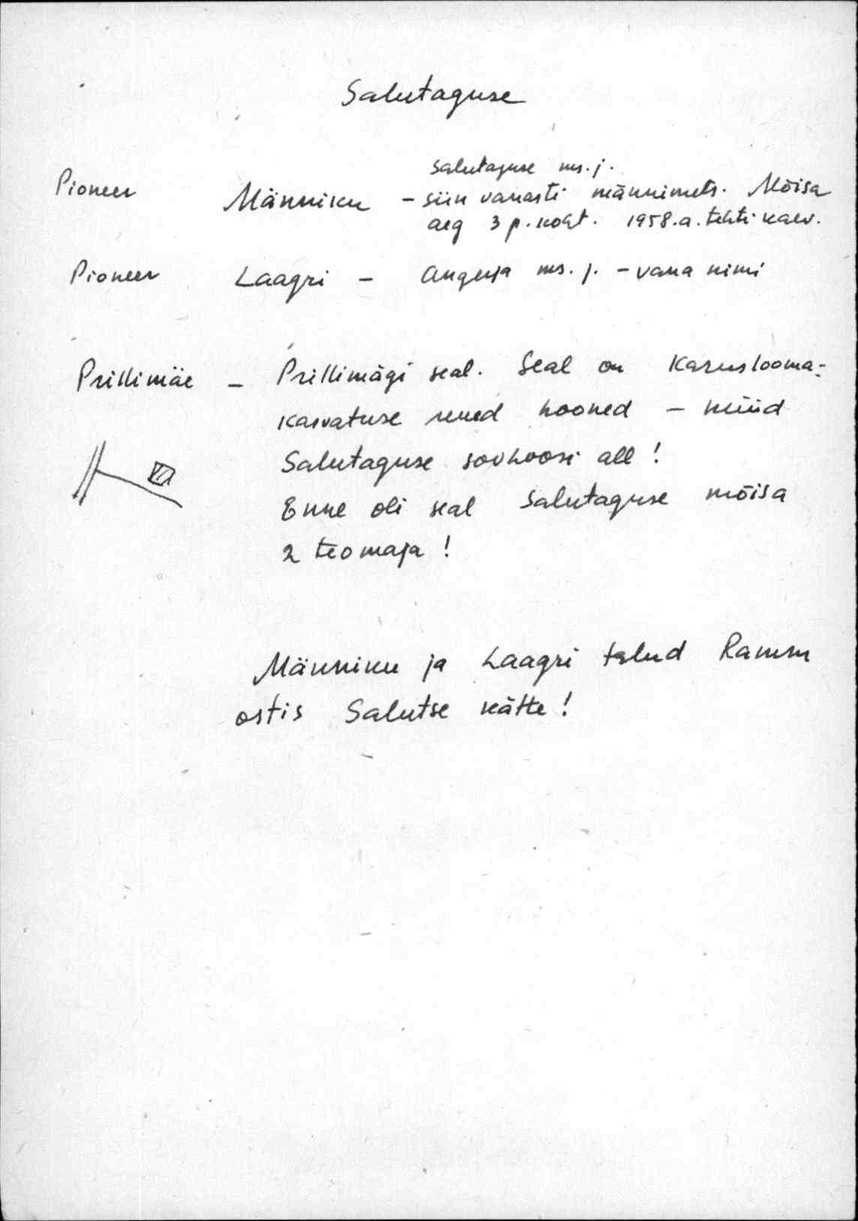 Salutaguse
Salutaguse ms. j.
Pioneer Männiku – siin vanasti männimets. Mõisa
aeg 3 p. koht. 1958.a. tehti kaev.
Pioneer Laagri – Angerja ms. j. – vana nimi
Prillimäe – Prillimägi seal. Seal on Karuslooma-
kasvatuse uued hooned – nüüd
Salutaguse sovhoosi all!
Enne oli seal Salutaguse mõisa
2 teomaja!
Männiku ja Laagri talud Ramm
ostis Salutse kätte!